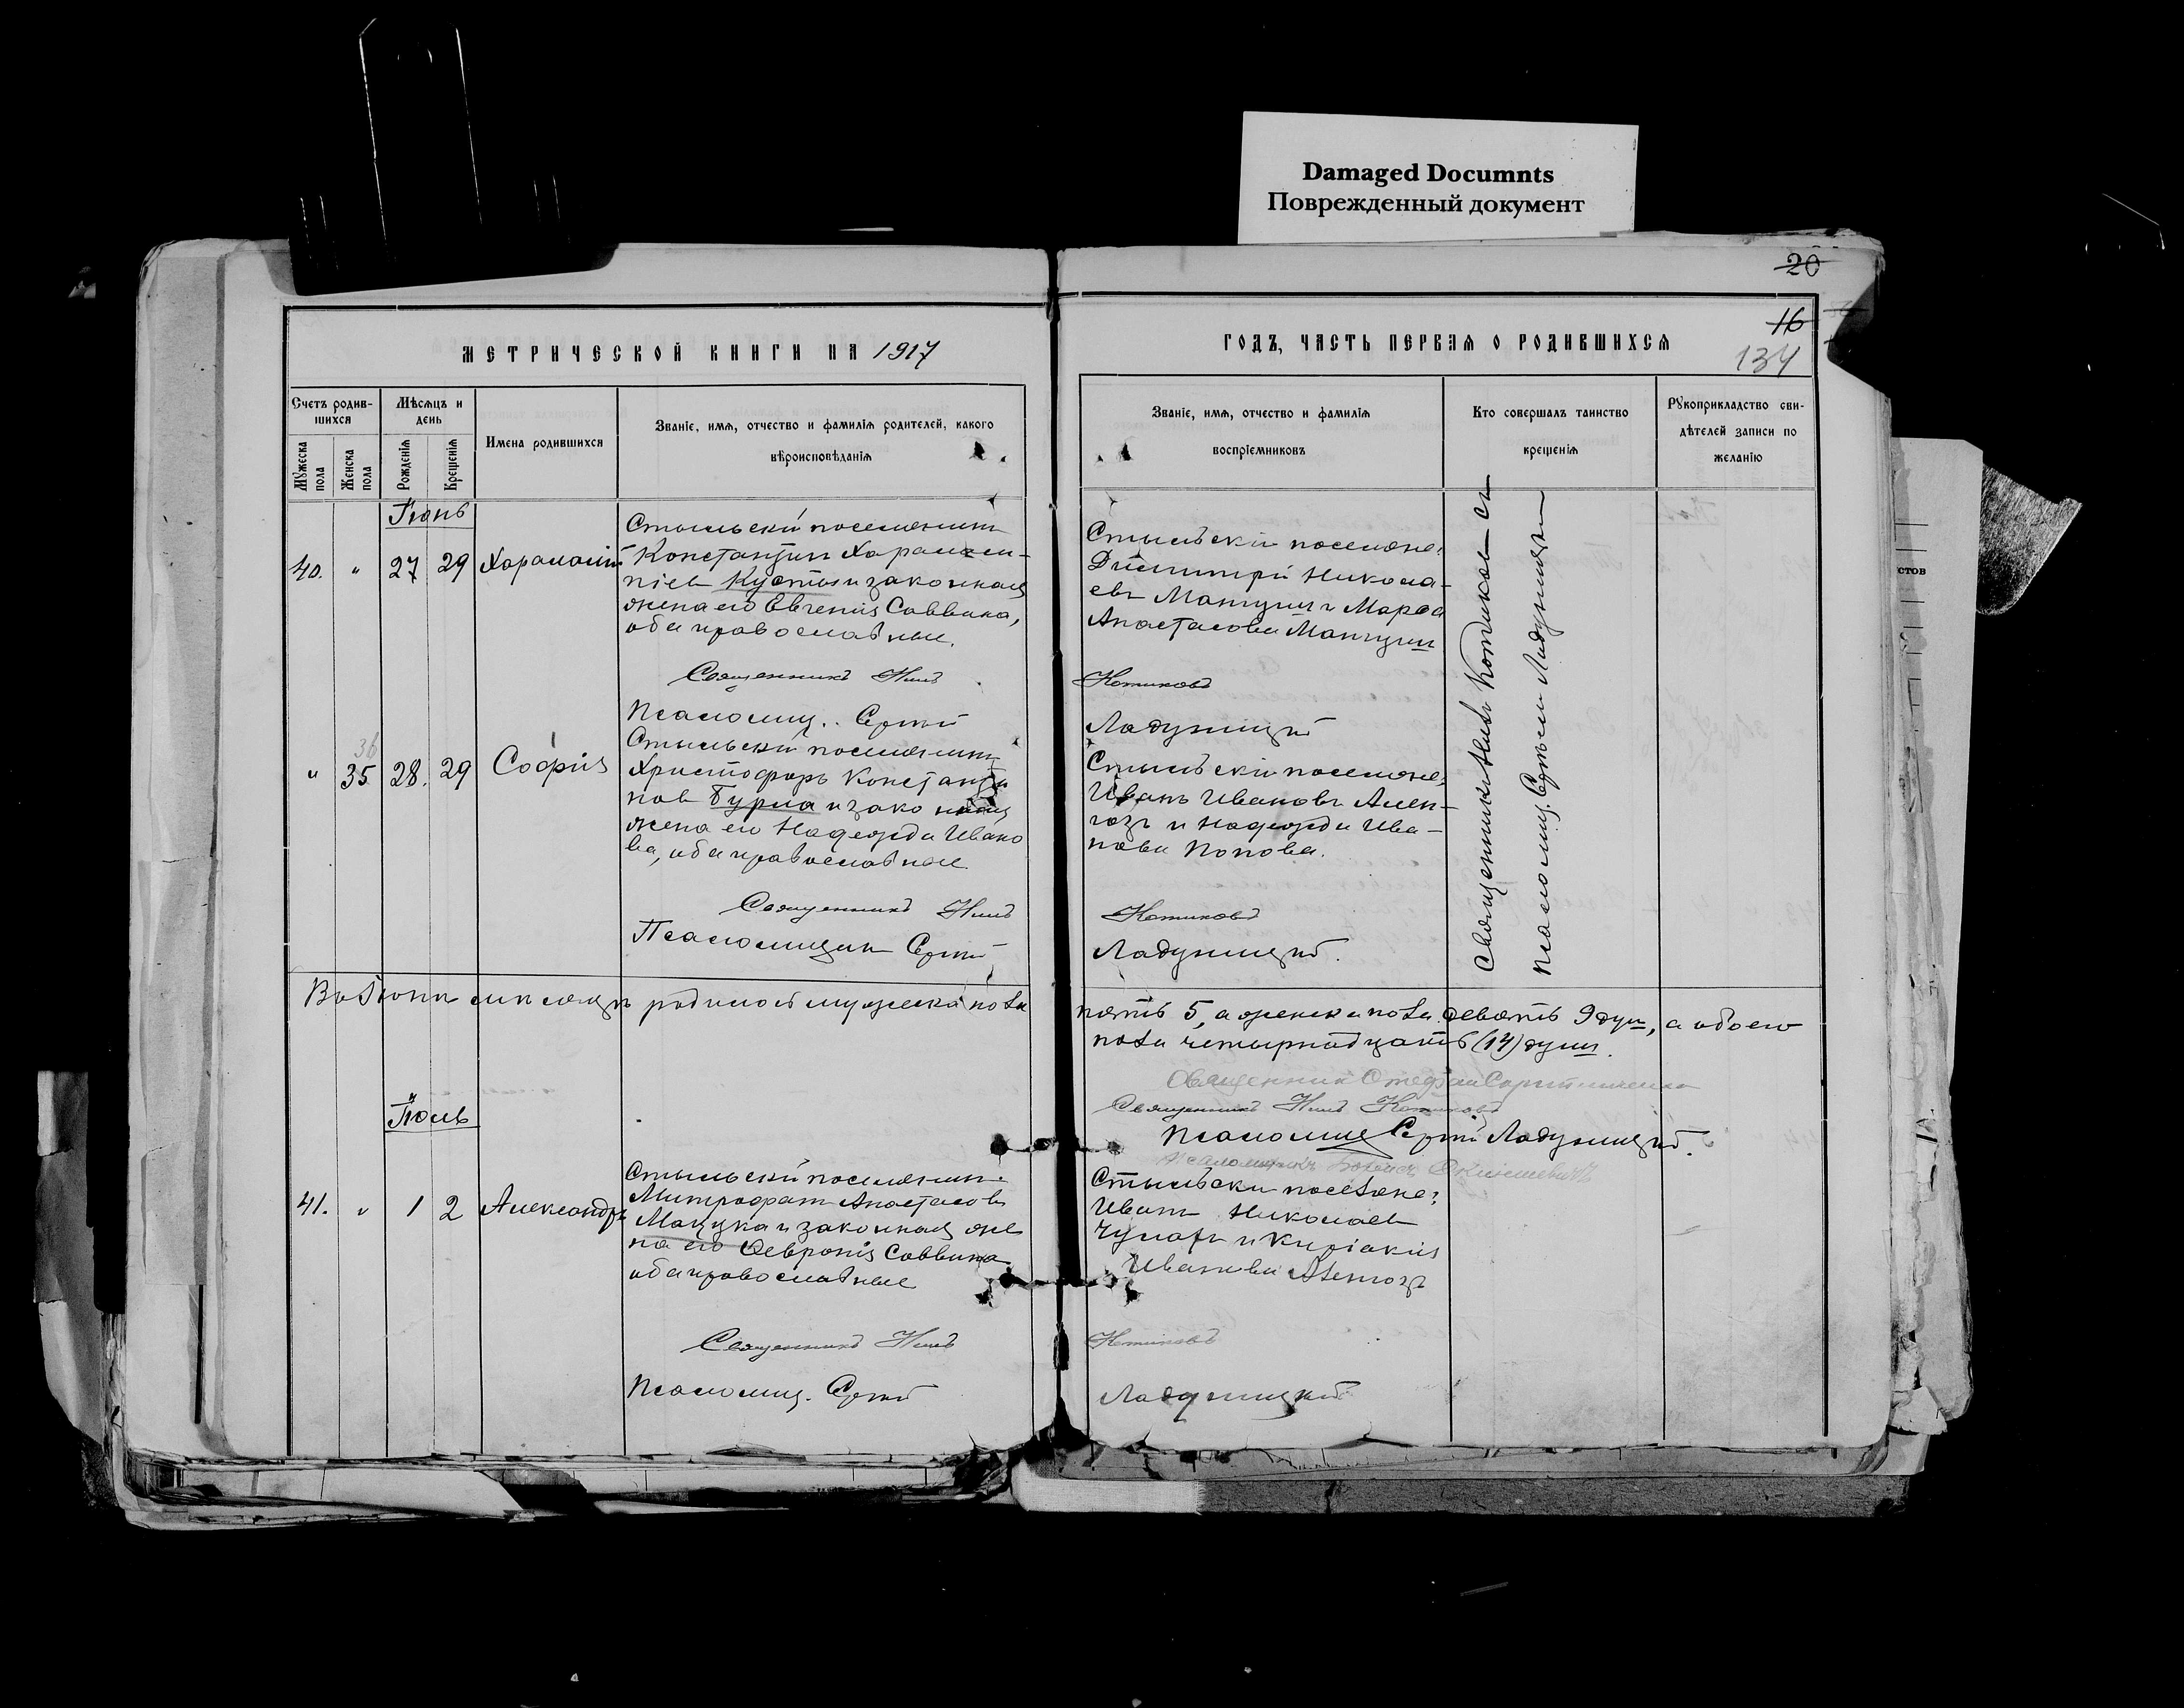 Damaged Documnts
Поврежденный документ
20
16
134
МЕТРИЧЕСКОЙ КНИГИ НА 1917
ГОДЪ, ЧАСТЬ ПЕРВАЯ О РОДИВШИХСЯ
Счетъ родив-
шихся
Мужеска
пола
Женска
пола
Мѣсяцъ и
день
Рожденія
Крещенія
Имена родившихся
Званіе, имя, отчество и фамилія родителей, какого
вѣроисповѣданія
Званіе, имя, отчество и фамилія
воспріемниковъ
Кто совершалъ таинство
крещенія
Рукоприкладство сви-
дѣтелей записи по
желанію
Іюнь
40. " 27 29 Харалампій
Стыльскій поселянинъ
Константинъ Харалам-
піевъ Кусты и законная
жена его Евгенія Саввина,
оба православные.
Священникъ Нилъ
Псаломщ. Сергій
Стыльскіе поселяне:
Димитрій Никола-
евъ Манцуи и Марѳа
Анастасова Манцуи
Котиковъ
Ладушицкій
Священникъ Нилъ Котиковъ съ
псаломщ. Сергѣемъ
" 36 35 28. 29 Софія
Стыльскій поселянинъ
Христофоръ Константи
новъ Бурма и законная
жена его Надежда Ивано
ва, оба православные.
Священникъ Нилъ
Псаломщикъ Сергій
Стыльскіе поселяне:
Иванъ Ивановъ
и Надежда Ива-
нова Попова.
Котиковъ
Ладушицкій.
Въ Іюнѣ мѣсяцѣ родилось мужеска пола
пять 5, а женска пола девять 9 душ, а обоего
пола четырнадцать (14) душъ.
Священник Стефан
Священникъ Нилъ Котиковъ
Псаломщ Сергій Ладушицкій.
Псаломщикъ
Іюль
41. " 1 2 Александръ
Стыльскій поселянинъ
Митрофанъ Анастасовъ
Мацука и законная же
на его Ѳевронія Саввина
оба православные
Священникъ Нилъ
Псаломщ. Сергій
Стыльскіе поселяне:
Иванъ Николаевъ
и Киріакія
Иванова
Котиковъ
Ладушицкій
стов